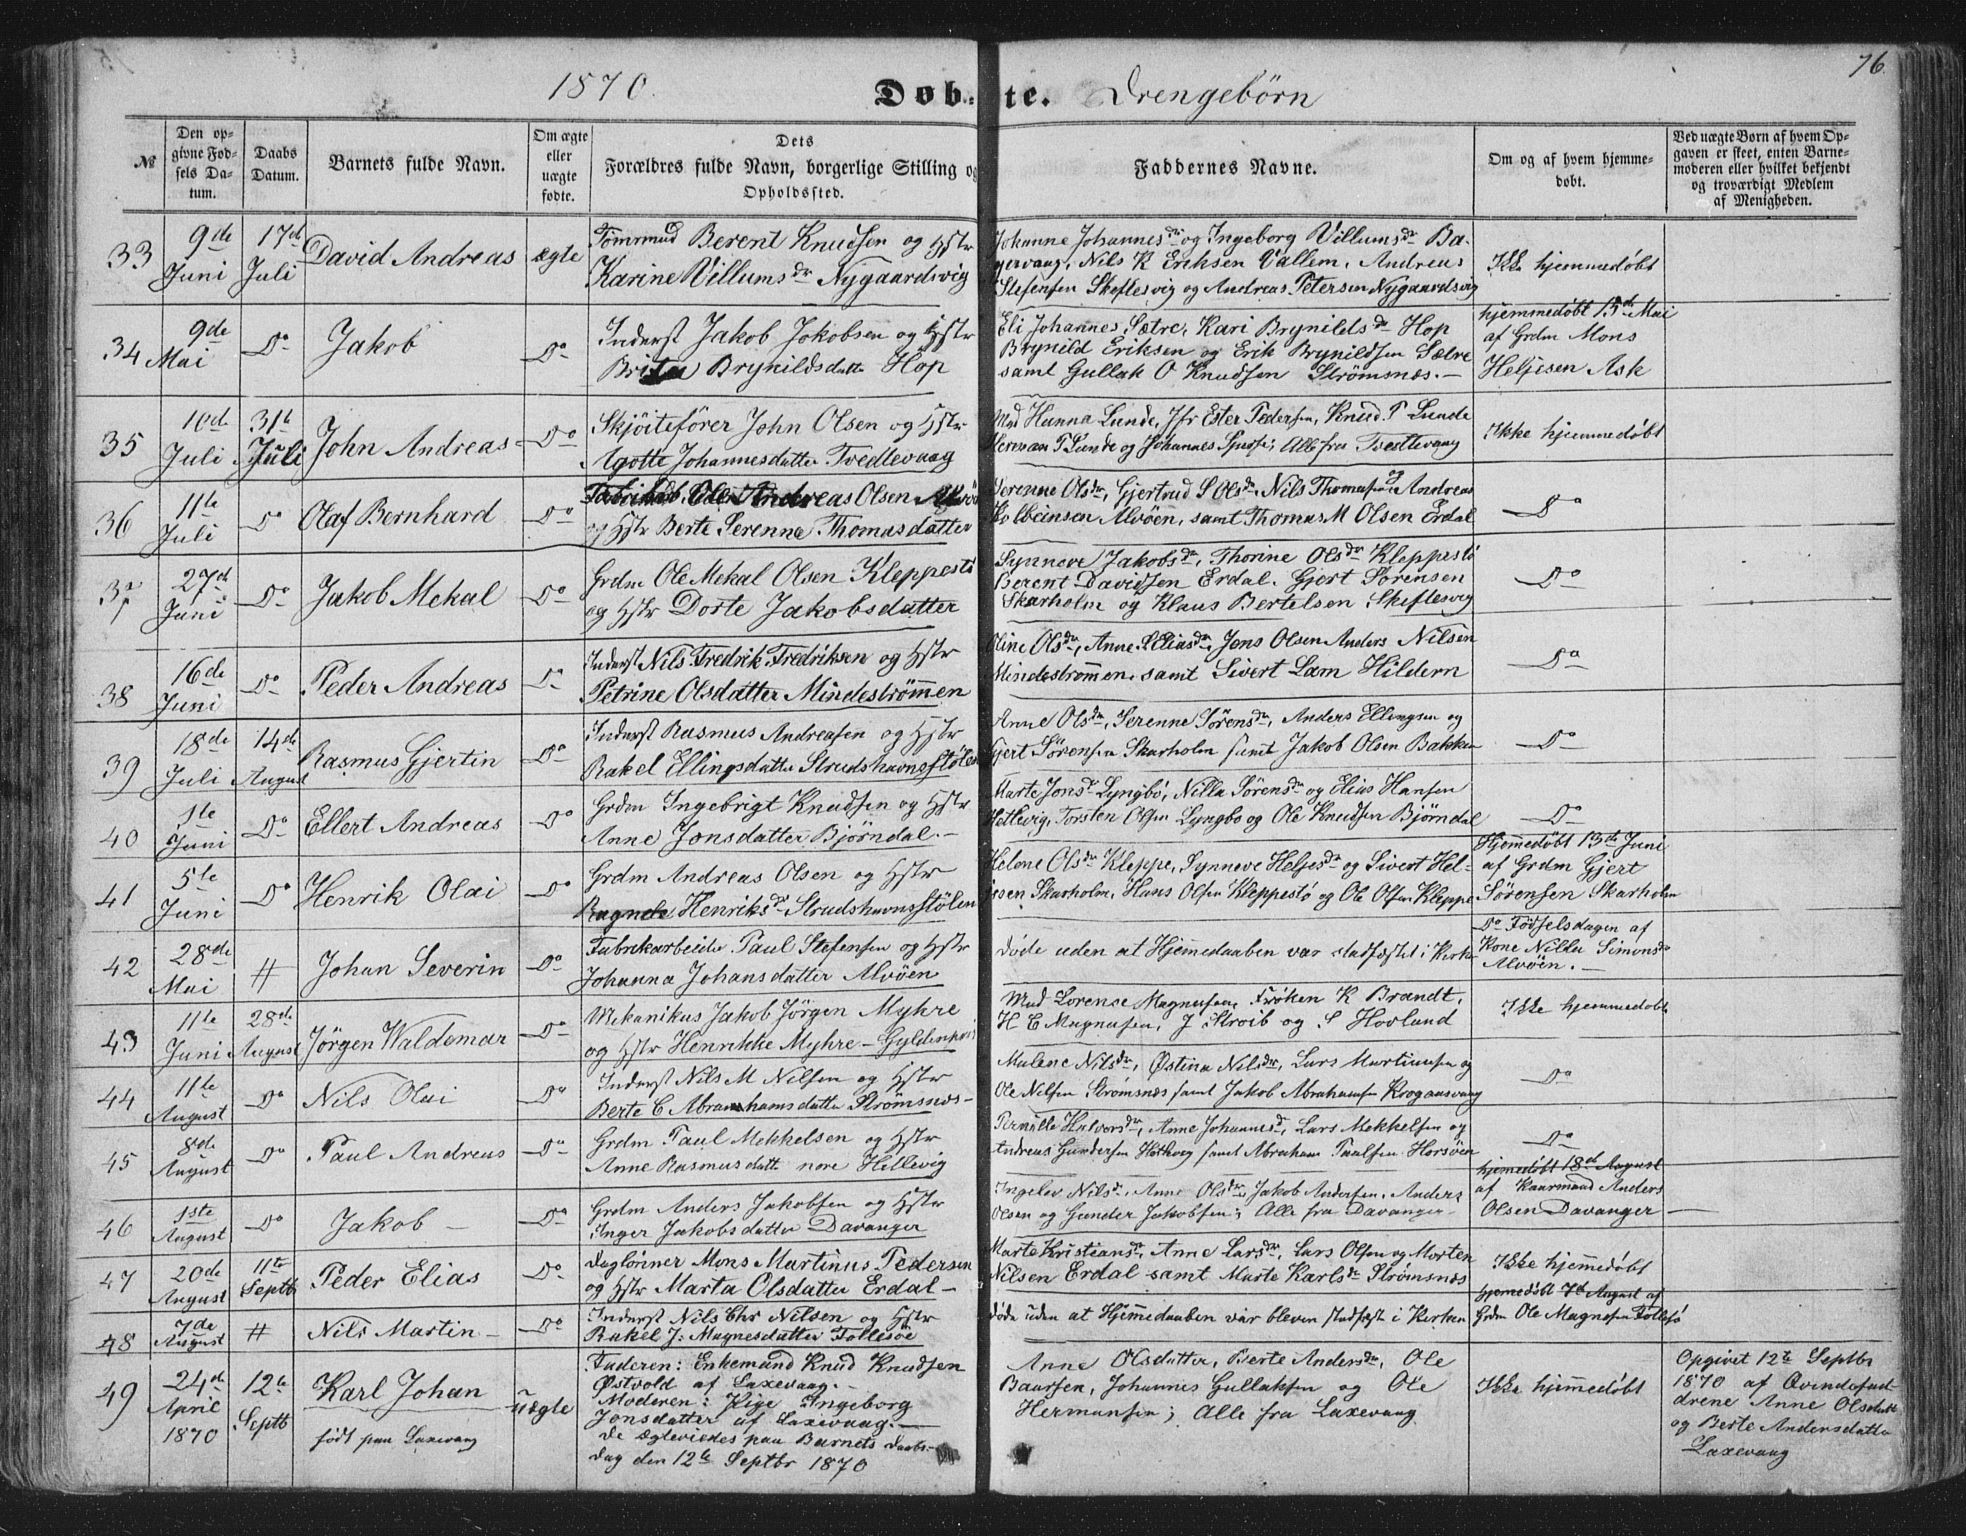 1870. Døb- te. Drengebørn 76.
№ | Den op-givne Fød-sels Da-tum. | Daabs Datum. | Barnets fulde Navn. | Om ægte eller uægte fødte. | Dets Forældres fulde Navn, borgerlige Stilling og Opholdssted. | Faddernes Navne. | Om og af hvem hjemme-døbt. | Ved uægte Børn af hvem Op-gaven er skeet, enten Barne-moderen eller hvilket bekjendt og troværdigt Medlem af Menigheden.
33 9de Juni 17de Juli David Andreas ægte
Tømrmd Berent Knudsen og Hstr
Karine Villumsdr Nygaardsvig
Johanne Johannesdr og Ingeborg Villumsdr
Nils K Eriksen Vallem, Andreas
Stefensen Skeflesvig og Andreas Petersen Nygaardsvig
Ikke hjemmedøbt
34 9de Mai Do Jakob Do
Inderst Jakob Jokobsen og Hstr
Brita Brynildsdatt Hop
Eli Johannes Sætre, Kari Brynildsdr Hop
Brynild Eriksen og Erik Brynildsen Sætre
samt Gullak O Knudsen Strømsnæs.—
hjemmedøbt 15de Mai
af Grdm Mons
Heljesen Ask
35 10de Juli 31te Juli John Andreas Do
Skjöitefører John Olsen og Hstr
Agotte Johannesdatter Tvedtevaag
Mad Hanna Lunde, Jfr Ester Pedersen, Knud P Lunde
Herman P Lunde og Johannes Alle fra Tvedtevaag
Ikke hjemmedøbt
36 11te Juli Do Olaf Bernhard Do
Andreas Olsen Alvöe
og Hstr Berte Serenna Thomasdatter
Serenne Olsdr, Gjertrud S Olsdr, Nils Thomasen, Andreas
Kolbeinsen Alvöen, samt Thomas M Olsen Erdal
Do
37 27de Juni Do Jakob Mekal Do
Grdm Ole Mekal Olsen Kleppestö
og Hstr Dorte Jakobsdatter
Synneve Jakobsdr, Thorine Olsdr Kleppestö
Berent Davidsen Erdal, Gjert Sørensen
Skarholm og Klaus Bertelsen Skeflesvig
Do
38 16de Juni Do Peder Andreas Do
Inderst Nils Fredrik Fredriksen og Hstr
Petrine Olsdatter Mindeströmmen
Oline Olsdr, Anne Eliasdr, Jens Olsen Anders Nilsen
Mindestrømmen, samt Sivert Lam Hildern
Do
39 18de Juli 14de August Rasmus Gjertin Do
Inderst Rasmus Andreasen og Hstr
Rakel Ellingsdatter Strudshavnsstölen
Anne Olsdr, Serenne Sørensdr, Anders Ellingsen og
Gjert Sørensen Skarholm samt Jakob Olsen Bakken
Do
40 1te Juni Do Ellert Andreas Do
Grdm Ingebrigt Knudsen og Hstr
Anne Jonsdatter Bjørndal.—
Marte Jonsdr Lyngbö, Nilla Sörensdr og Elias Hansen
Hetlevig, Torsten Olsen Lyngbö og Ole Knudsen Bjørndal
Do
41 5te Juni Do Henrik Olai Do
Grdm Andreas Olsen og Hstr
Ragnele Henriksdr Strudshavnsstölen
Helene Olsdr Kleppe, Synneve Heljesdr og Sivert Hel-
jesen Skarholm, Hans Olsen Kleppestö og Ole Olsen Kleppe
Hjemedøbt 13de Juni
af Grdm Gjert
Sørensen Skarholm
42 28de Mai # Johan Severin Do
Fabrikarbeider Paul Stefensen og Hstr
Johanna Johansdatter Alvöen
Døde uden at Hjemedaaben var stadfæstet i Kirke
Do Fødselsdagen af
Kone Nilla Simonsdr
Alvöen.—
43 11te Juni 28de August Jørgen Waldemar Do
Mekanikus Jakob Jørgen Myhre
og Hstr Henrikke Myhre - Gyldenpriis
Mad Lorense Magnusen, Frøken K Brandt,
H C Magnusen, J Stroib og S Hovland
Ikke hjemmedøbt
44 11te August Do Nils Olai Do
Inderst Nils M Nilsen og Hstr
Berte C Abrahamsdatter Strömsnæs-
Malene Nilsdr, Østina Nilsdr, Lars Martinusen og
Ole Nilsen Strömsnæs samt Jakob Abrahamsen Krogaasvaag
Do
45 8de August Do Paul Andreas Do
Grdm Paul Mekkelsen og Hstr
Anne Rasmusdatt nore Hetlevig
Pernille Halvorsdr, Anne Johannesd, Lars Mekkelsen og
Andreas Gundersen Hetlevig samt Abraham Paulsen Horsöen
Do
46 1ste August Do Jakob — Do
Grdm Anders Jakobsen og Hstr
Inger Jakobsdatter Davanger
Ingelev Nilsd, Anne Olsdr, Jakob Andersen, Anders
Olsen og Gunder Jakobsen; Alle fra Davanger
hjemedøbt 18de August
af Kaarmand Anders
Olsen Davanger —
47 20de August 11te Septb Peder Elias Do
Daglønner Mons Martinus Pedersen
og Hstr Marta Olsdatter Erdal —
Marte Kristiansdr, Anne Larsdr, Lars Olsen og Morten
Nilsen Erdal samt Marte Karlsdr Strømsnæs
Ikke hjemmedøbt
48 7de August # Nils Martin — Do
Inderst Nils Chr Nilsen og Hstr
Rakel J: Magnesdatter Follesöe
døde uden at Hjemedaaben var bleven stadfæst i Kirken
hjemedøbt 7d August af
Grdm Ole Magnesen Follesö
49 24de April 1870 12te Septb Karl Johan
født paa Laxevaag
uægte
Faderen: Enkemand Knud Knudsen
Østvold af Laxevaag.—
Moderen: Pige Ingeborg
Jonsdatter af Laxevaag.—
De ægteviedes paa Barnets Daabs-
dag den 12te Septbr 1870
Anne Olsdatter, Berte Andersdr, Ole
Baarsen, Johannes Gullaksen og Ole
Hermansen; Alle fra Laxevaag
Ikke hjemmedøbt
Opgivet 12te Septbr
1870 af Qvindefad-
drene Anne Olsdatt
og Berte Andersdatter
Laxevaag